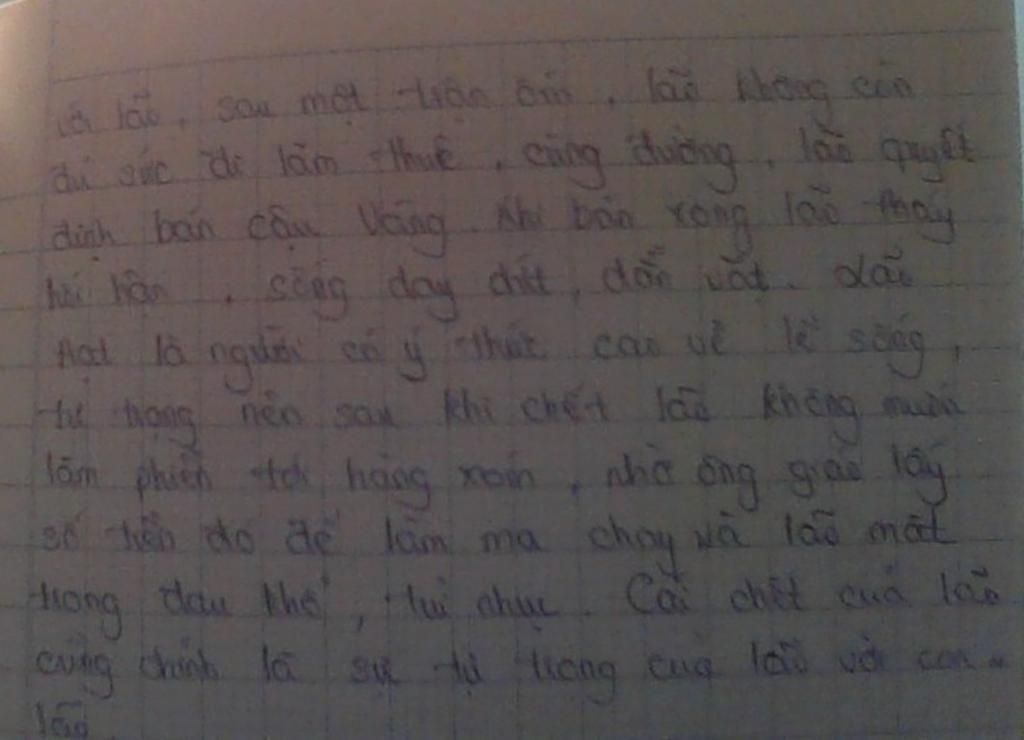 lão, sau một trận ốm, lão không còn
đủ sức đi làm thuê, cùng đường, lão quyết
định bán cậu Vàng. Khi bán xong lão thấy
hối hận, sống day dứt, dằn vặt. Lão
Hạc là người có ý thức cao về lẽ sống,
tự trọng nên sau khi chết lão không muốn
làm phiền tới hàng xóm, nhờ ông giáo lấy
số tiền đó để làm ma chay và lão mất
trong đau khổ, tủi nhục. Cái chết của lão
cũng chính là sự tự trọng của lão với con
lão